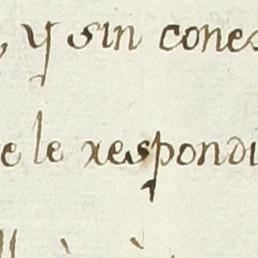 , y sin cones
e le respondi